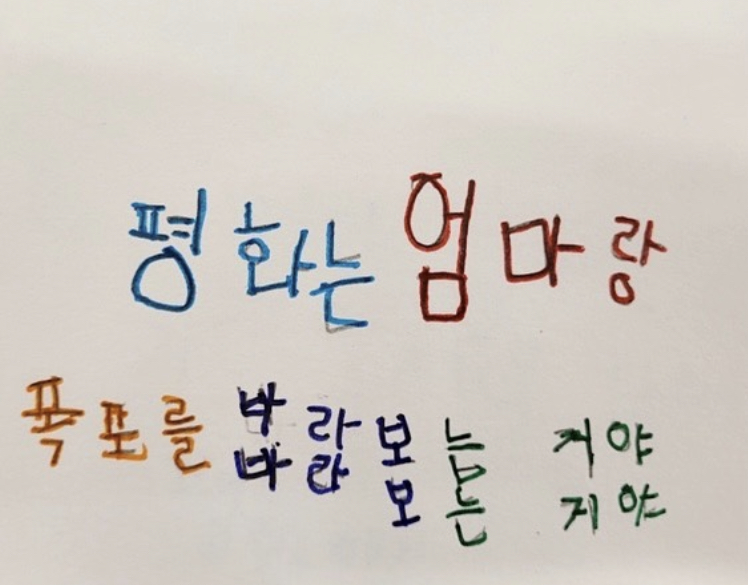 평화는 엄마랑
폭포를 바라보는 거야
바라보는 지야